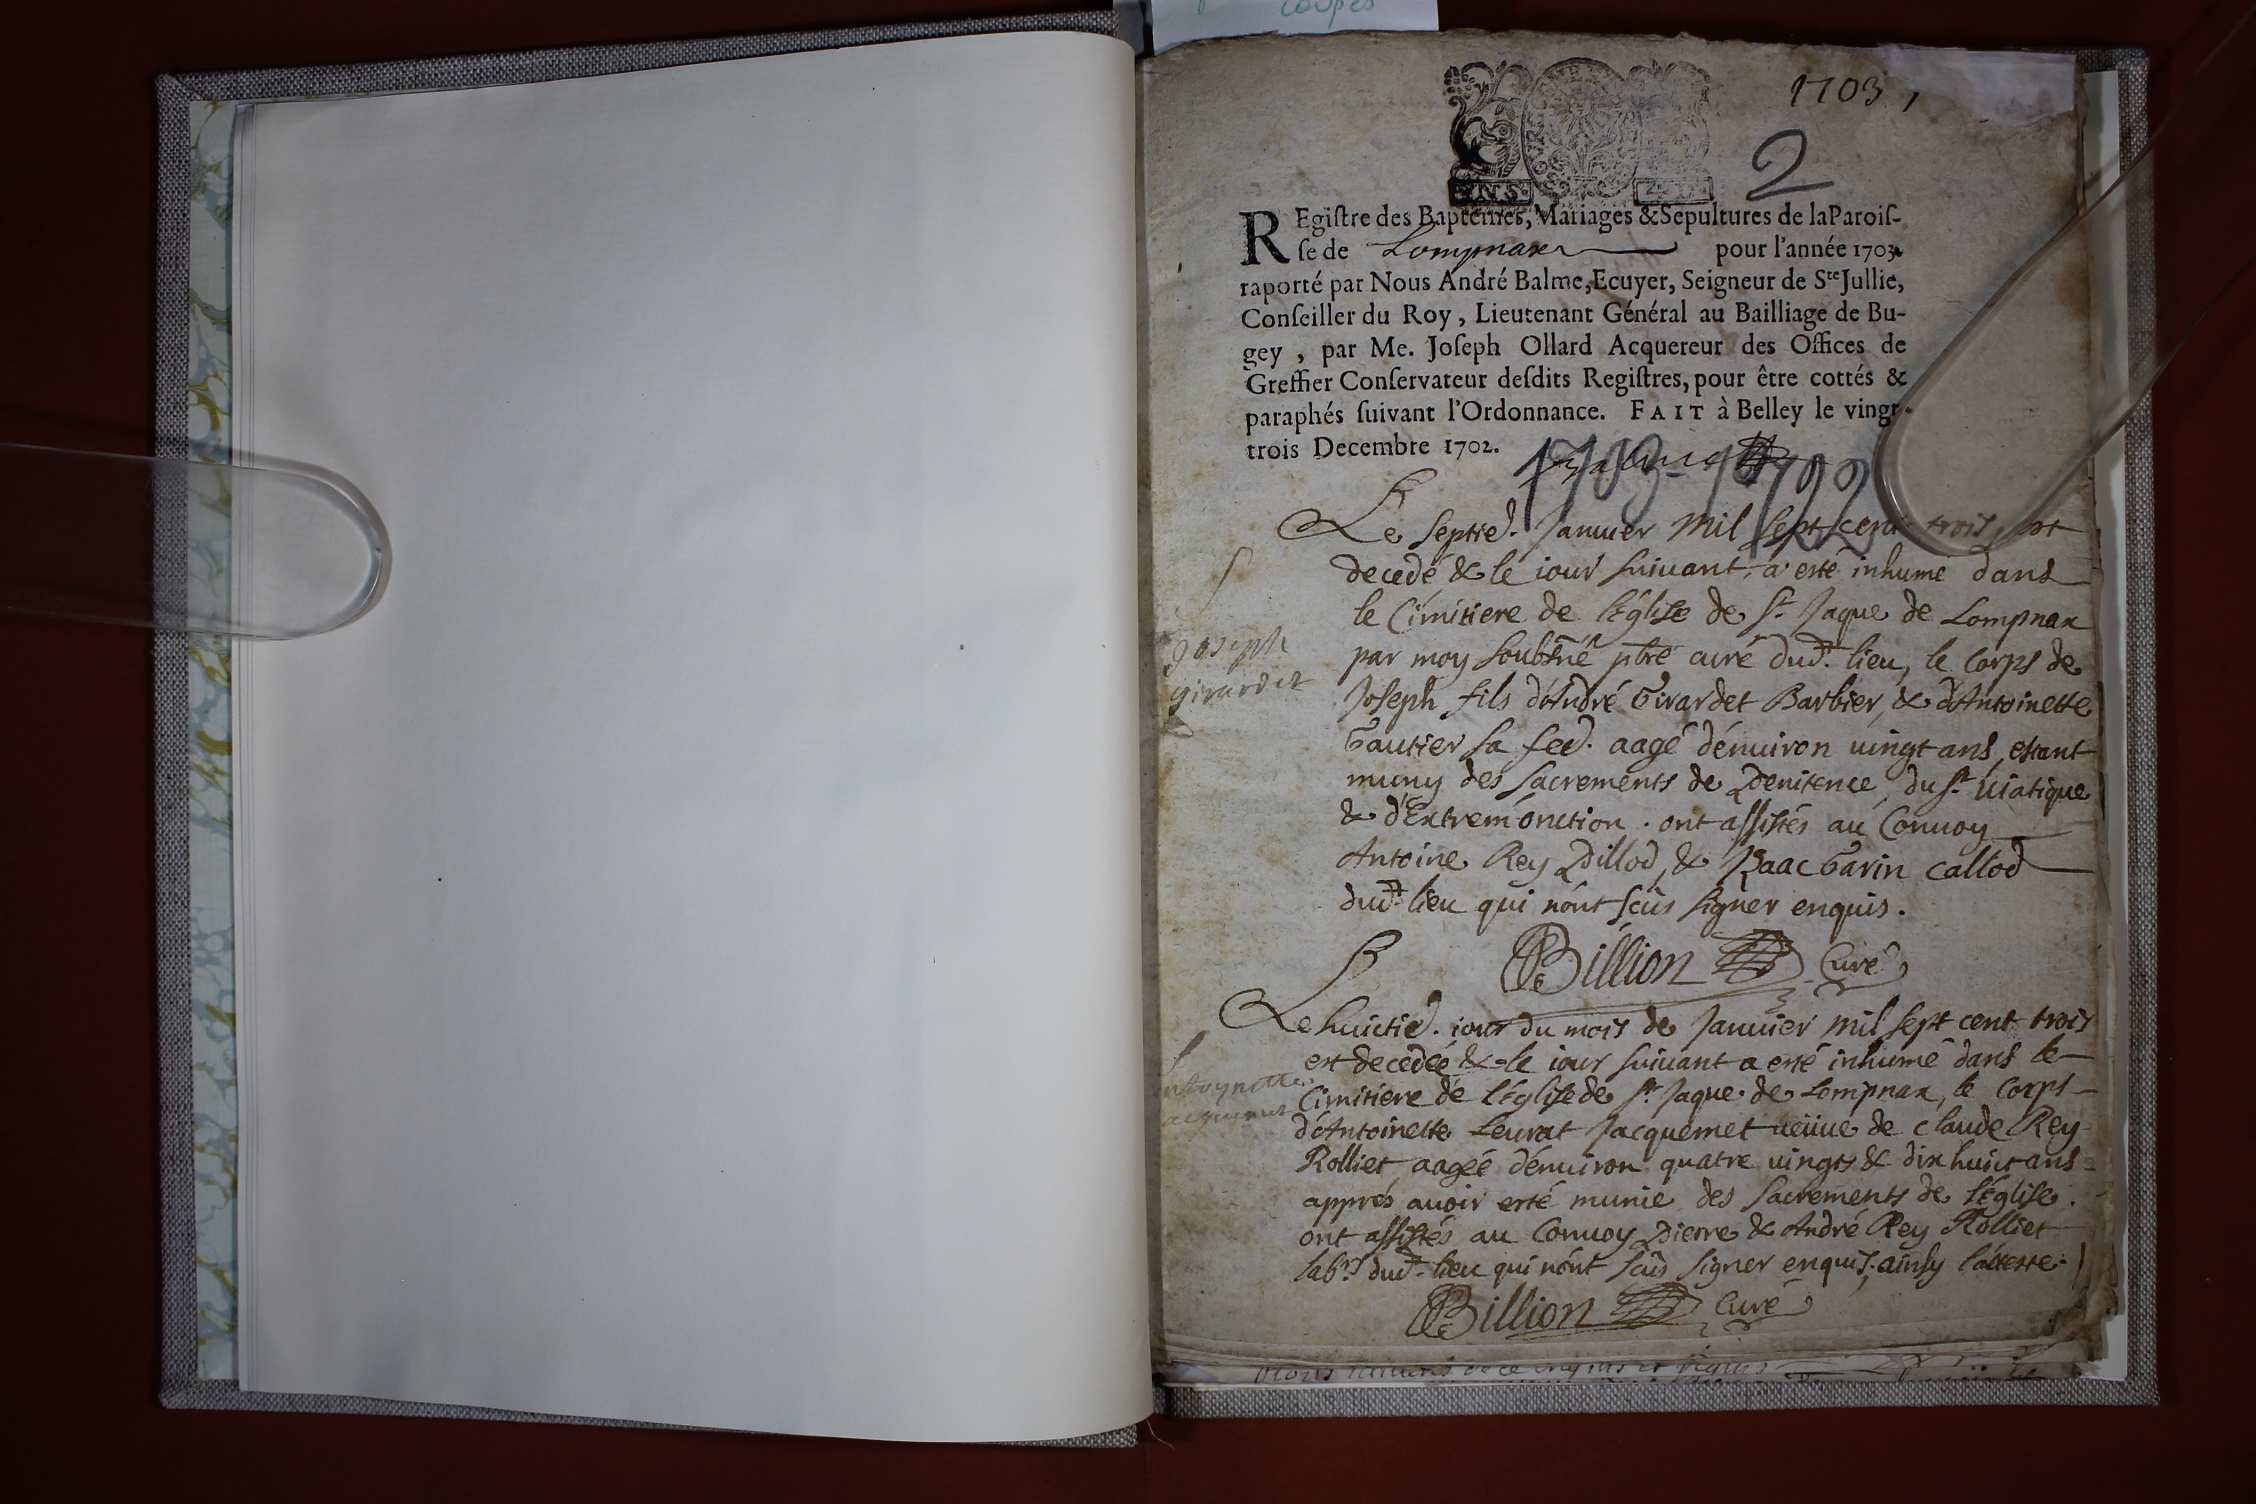 coupés
1703,
2
REgiſtre des Baptemes, Mariages & Sepultures de la Paroiſ-
ſe de Lompnax pour l'année 1703.
raporté par Nous André Balme, Ecuyer, Seigneur de Ste Jullie,
Conſeiller du Roy, Lieutenant Général au Bailliage de Bu-
gey, par Me. Joſeph Ollard Acquereur des Offices de
Greffier Conſervateur deſdits Regiſtres, pour être cottés &
paraphés ſuivant l'Ordonnance. FAIT à Belley le vingt-
trois Decembre 1702.
Balme
Le septie. Januier mil sept cent trois, est
decedé & le iour suiuant, a esté inhumé dans
le Cimitiere de l'Église de St. Jaque de Lompnax
par moy soubsné pbre curé dud. lieu, le Corps de
Joseph fils d'André Girardet Barbier, & d'Antoinette
Gautier sa fed. aagé d'enuiron uingt ans, estant
muny des Sacrements de Penitence, du St. Uiatique
& d'Extremónction. ont assistés au Conuoy
Antoine Rey Pillod, & Isaac Garin Callod
dud. lieu qui nónt scûs signer enquis.
Billion Curé
Joseph
girardet
Le huictie. iour du mois de Januier mil sept cent trois
est decedée & le iour suiuant a esté inhumé dans le
Cimitiere de l'Église de St. Jaque de Lompnax, le Corps
d'Antoinette Leurat Jacquemet ueüue de Claude Rey
Rolliet aagée d'enuiron quatre uingts & dix huict ans
apprés auoir esté munie des Sacrements de l'Église.
ont assistés au Conuoy Pierre & André Rey Rolliet
labrs. dud. lieu qui nónt scûs signer enquis, ainsy l'atteste.
Billion Curé